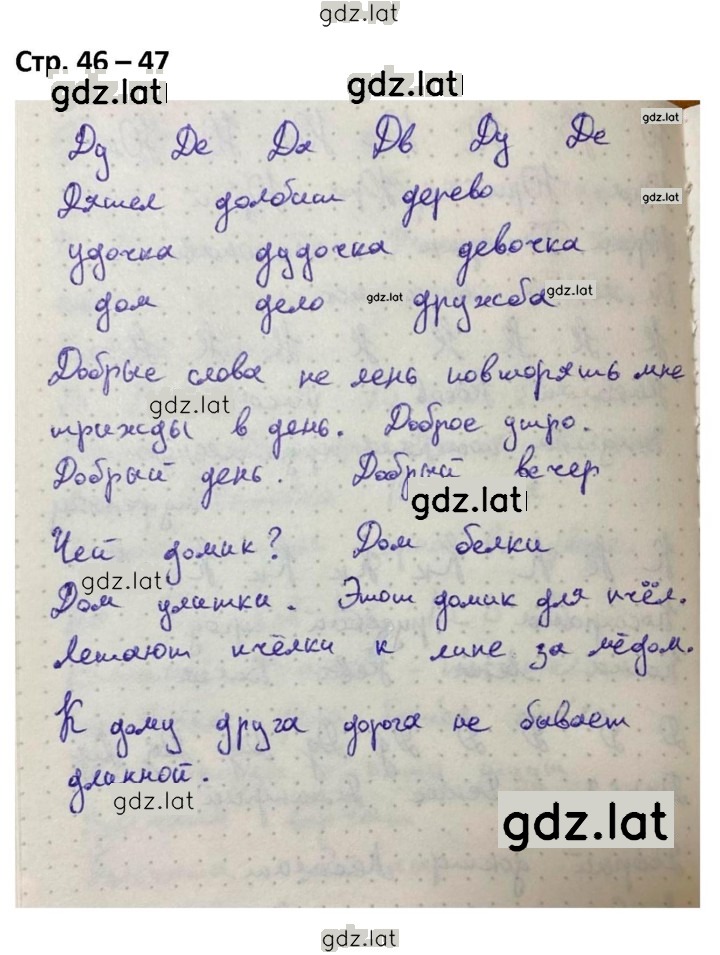 gdz.lat
Стр. 46 – 47
gdz.lat gdz.lat
gdz.lat
Ду Де Дя Дв Ду Де
Дятел долбит дерево
gdz.lat
удочка дудочка девочка
дом дело gdz.lat дружба gdz.lat
Добрые слова не лень повторять мне
gdz.lat
трижды в день. Доброе утро.
Добрый день. Добрый вечер
gdz.lat
Чей домик? Дом белки
gdz.lat
Дом улитки. Этот домик для пчёл.
Летают пчёлки к липе за мёдом.
К дому друга дорога не бывает
длинной.
gdz.lat
gdz.lat
gdz.lat